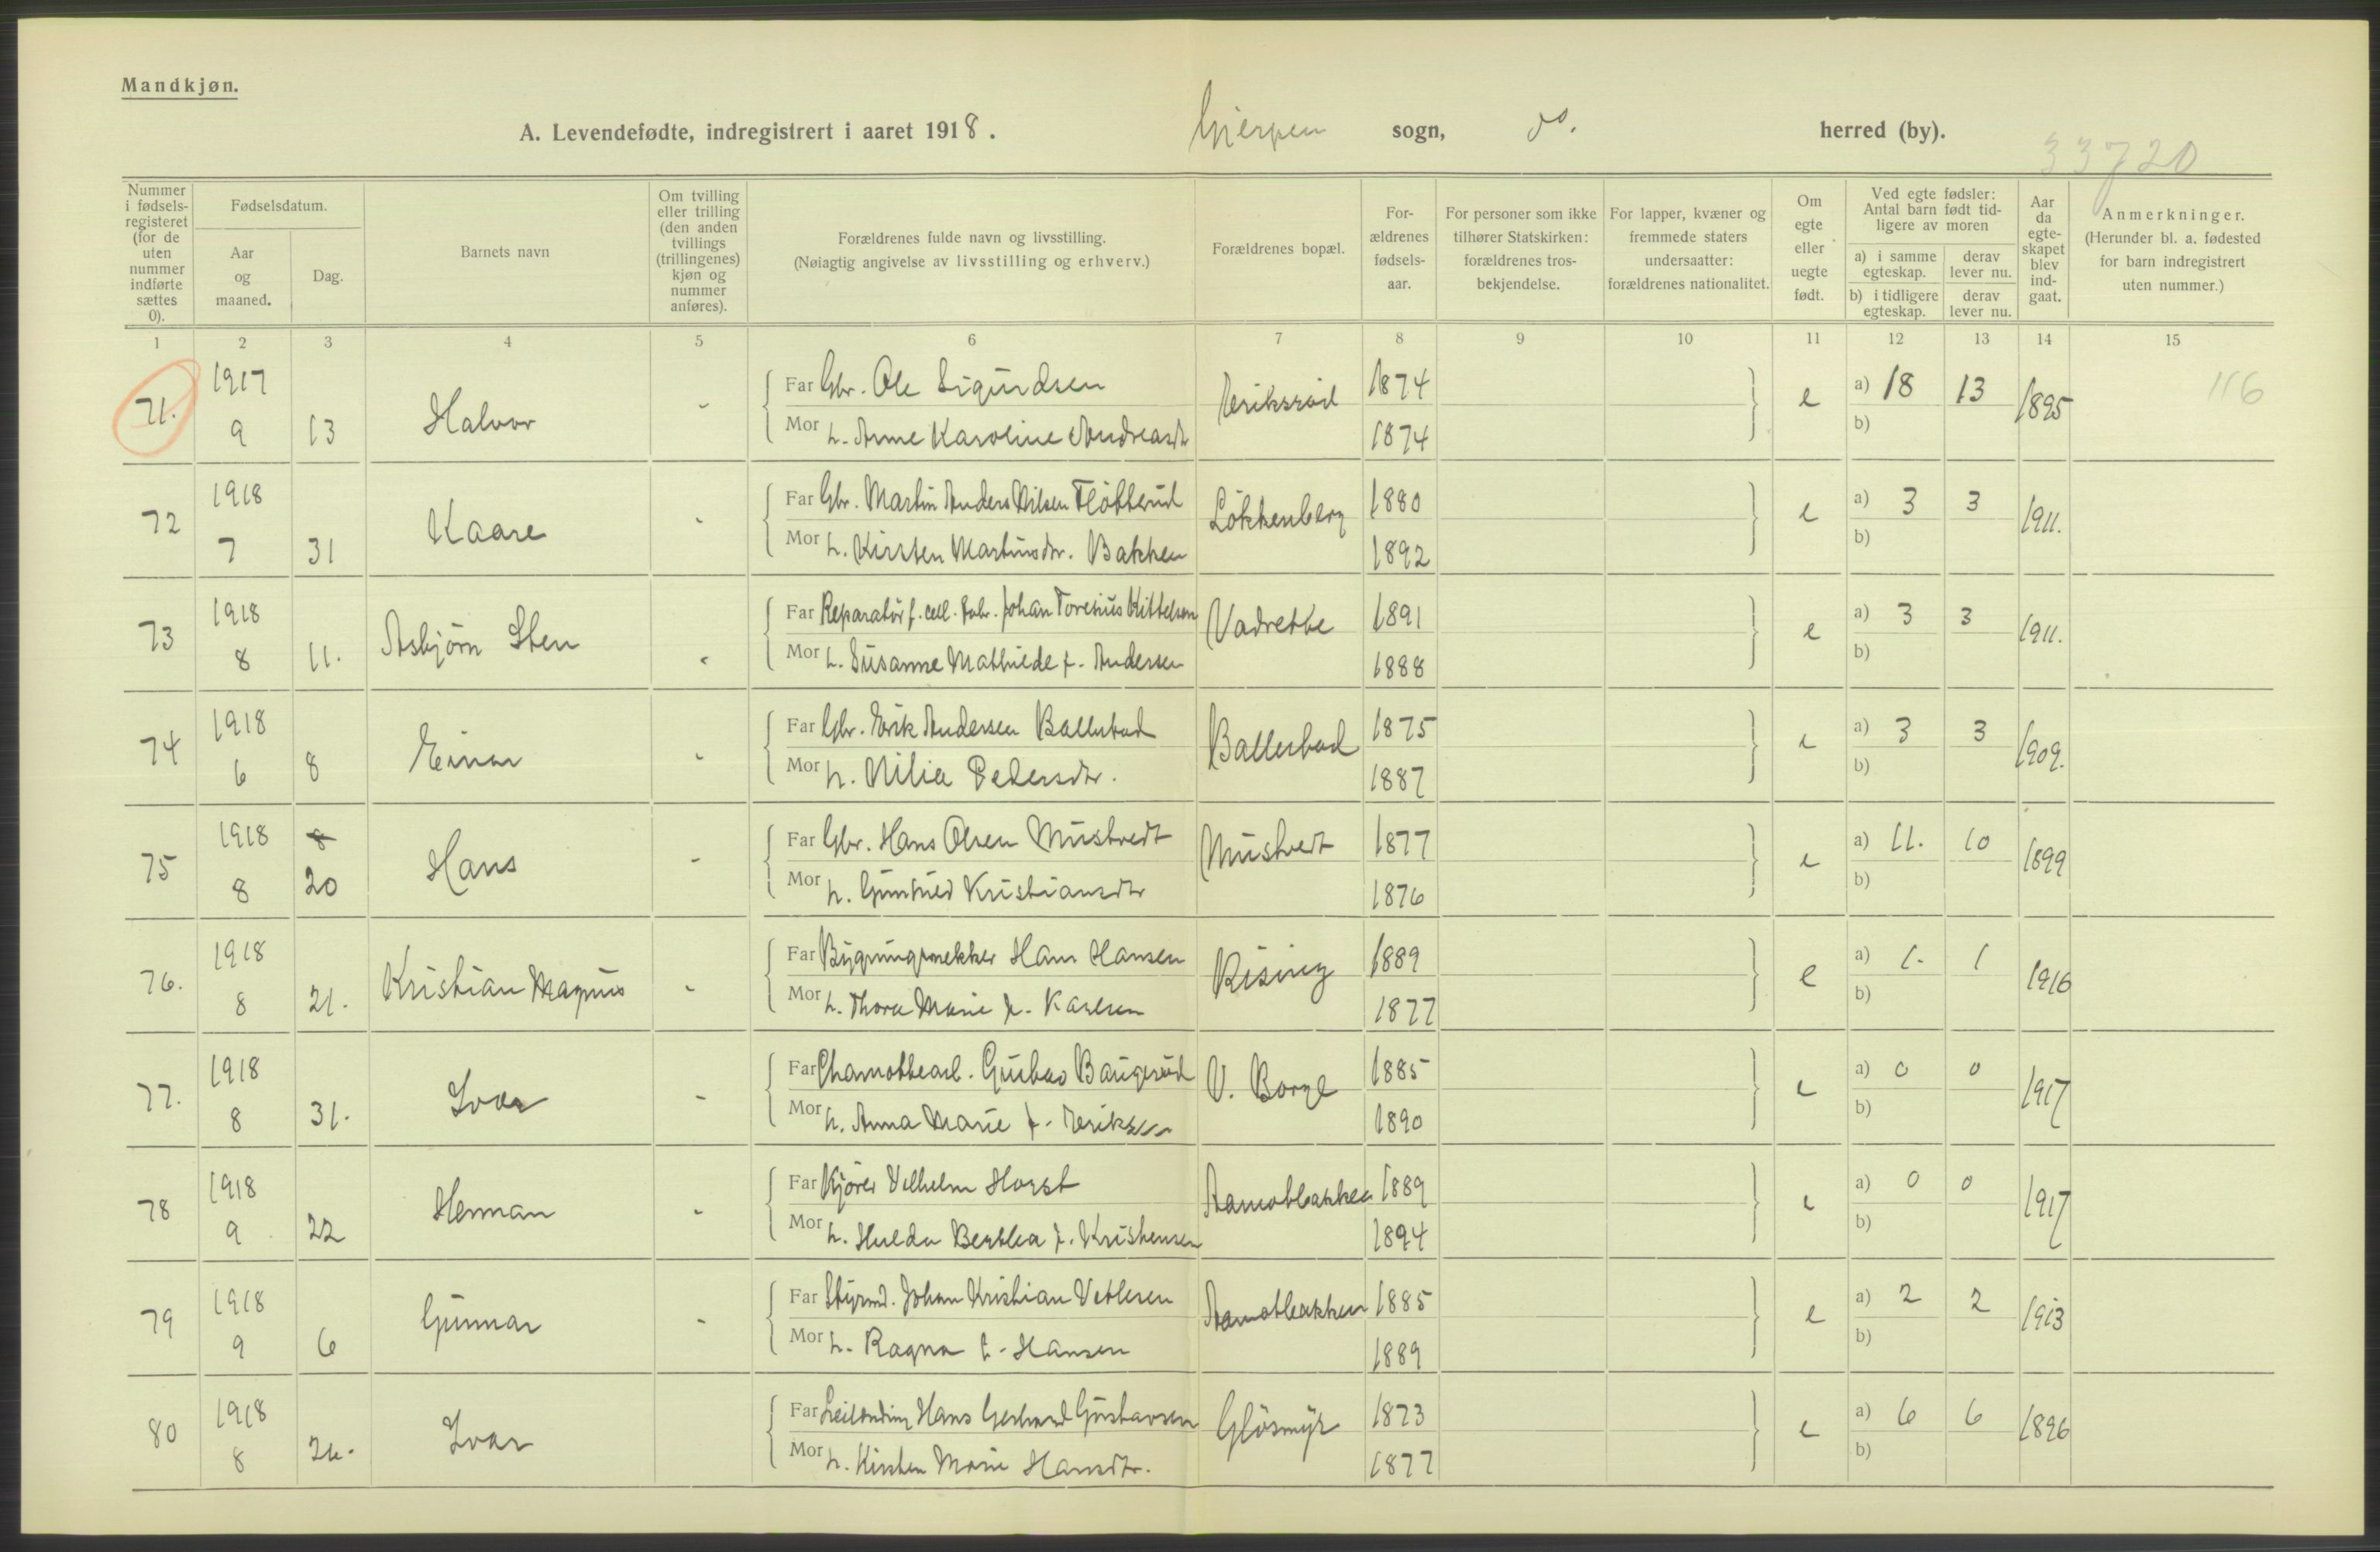 Mandkjøn.
A. Levendefødte, indregistrert i aaret 1918. Gjerpen sogn, do. herred (by).
33720
Nummer i fødsels-registeret (for de uten nummer indførte sættes 0).
Fødselsdatum.
Aar og maaned.
Dag.
Barnets navn
Om tvilling eller trilling (den anden tvillings (trillingenes) kjøn og nummer anføres).
Forældrenes fulde navn og livsstilling.
(Nøiagtig angivelse av livsstilling og erhverv.)
Forældrenes bopæl.
For-ældrenes fødsels-aar.
For personer som ikke tilhører Statskirken: forældrenes tros-bekjendelse.
For lapper, kvæner og fremmede staters undersaatter: forældrenes nationalitet.
Om egte eller uegte født.
Ved egte fødsler: Antal barn født tid-ligere av moren
a) i samme egteskap.
derav lever nu.
b) i tidligere egteskap.
derav lever nu.
Aar da egte-skapet blev ind-gaat.
Anmerkninger.
(Herunder bl. a. fødested for barn indregistrert uten nummer.)
1 2 3 4 5 6 7 8 9 10 11 12 13 14 15
71. 1917 9 13 Halvor - Far Gbr. Ole Sigurdsen Eriksrød 1874 e a) 18 13 1895 116
Mor h. Anne Karoline Andreasdtr 1874 b)
72 1918 7 31 Kaare - Far Gbr. Martin Anders Nilsen Fløtterud Løkkenberg 1880 e a) 3 3 1911.
Mor h. Kirsten Martinsdtr. Bakken 1892 b)
73 1918 8 11. Asbjörn Sten - Far Reparatør f. cell. fabr. Johan Toresius Kittelsen Vadrette 1891 e a) 3 3 1911.
Mor h. Susanne Mathilde f. Andersen 1888 b)
74 1918 6 8 Einar - Far Gbr. Erik Andersen Ballestad Ballestad 1875 e a) 3 3 1909.
Mor h. Nilia Pedersdtr. 1887 b)
75 1918 8 8 20 Hans - Far Gbr. Hans Olsen Mustvedt Mustvedt 1877 e a) 11. 10 1899
Mor h. Gunhild Kristiansdtr 1876 b)
76. 1918 8 21. Kristian Magnus - Far Bygningsnekker Hans Hansen Rising 1889 e a) 1. 1 1916
Mor h. Thora Marie f. Karlsen 1877 b)
77. 1918 8 31. Ivar - Far Chamottearb. Gustav Baugerød V. Borge 1885 e a) 0 0 1917
Mor h. Anna Marie f. Eriksen 1890 b)
78 1918 9 22 Herman - Far Kjører Vilhelm Horst Aamotbakken 1889 e a) 0 0 1917
Mor h. Hulda Berthea f. Kristensen 1894 b)
79 1918 9 6 Gunnar - Far Styrmd. Johan Kristian Vetlesen Aamotbakken 1885 e a) 2 2 1913
Mor h. Ragna f. Hansen 1889 b)
80 1918 8 26. Ivar Far Leilending Hans Gerhard Gustavsen Gløsmyr 1873 e a) 6 6 1896
Mor h. Kirsten Marie Hansdtr. 1877 b)